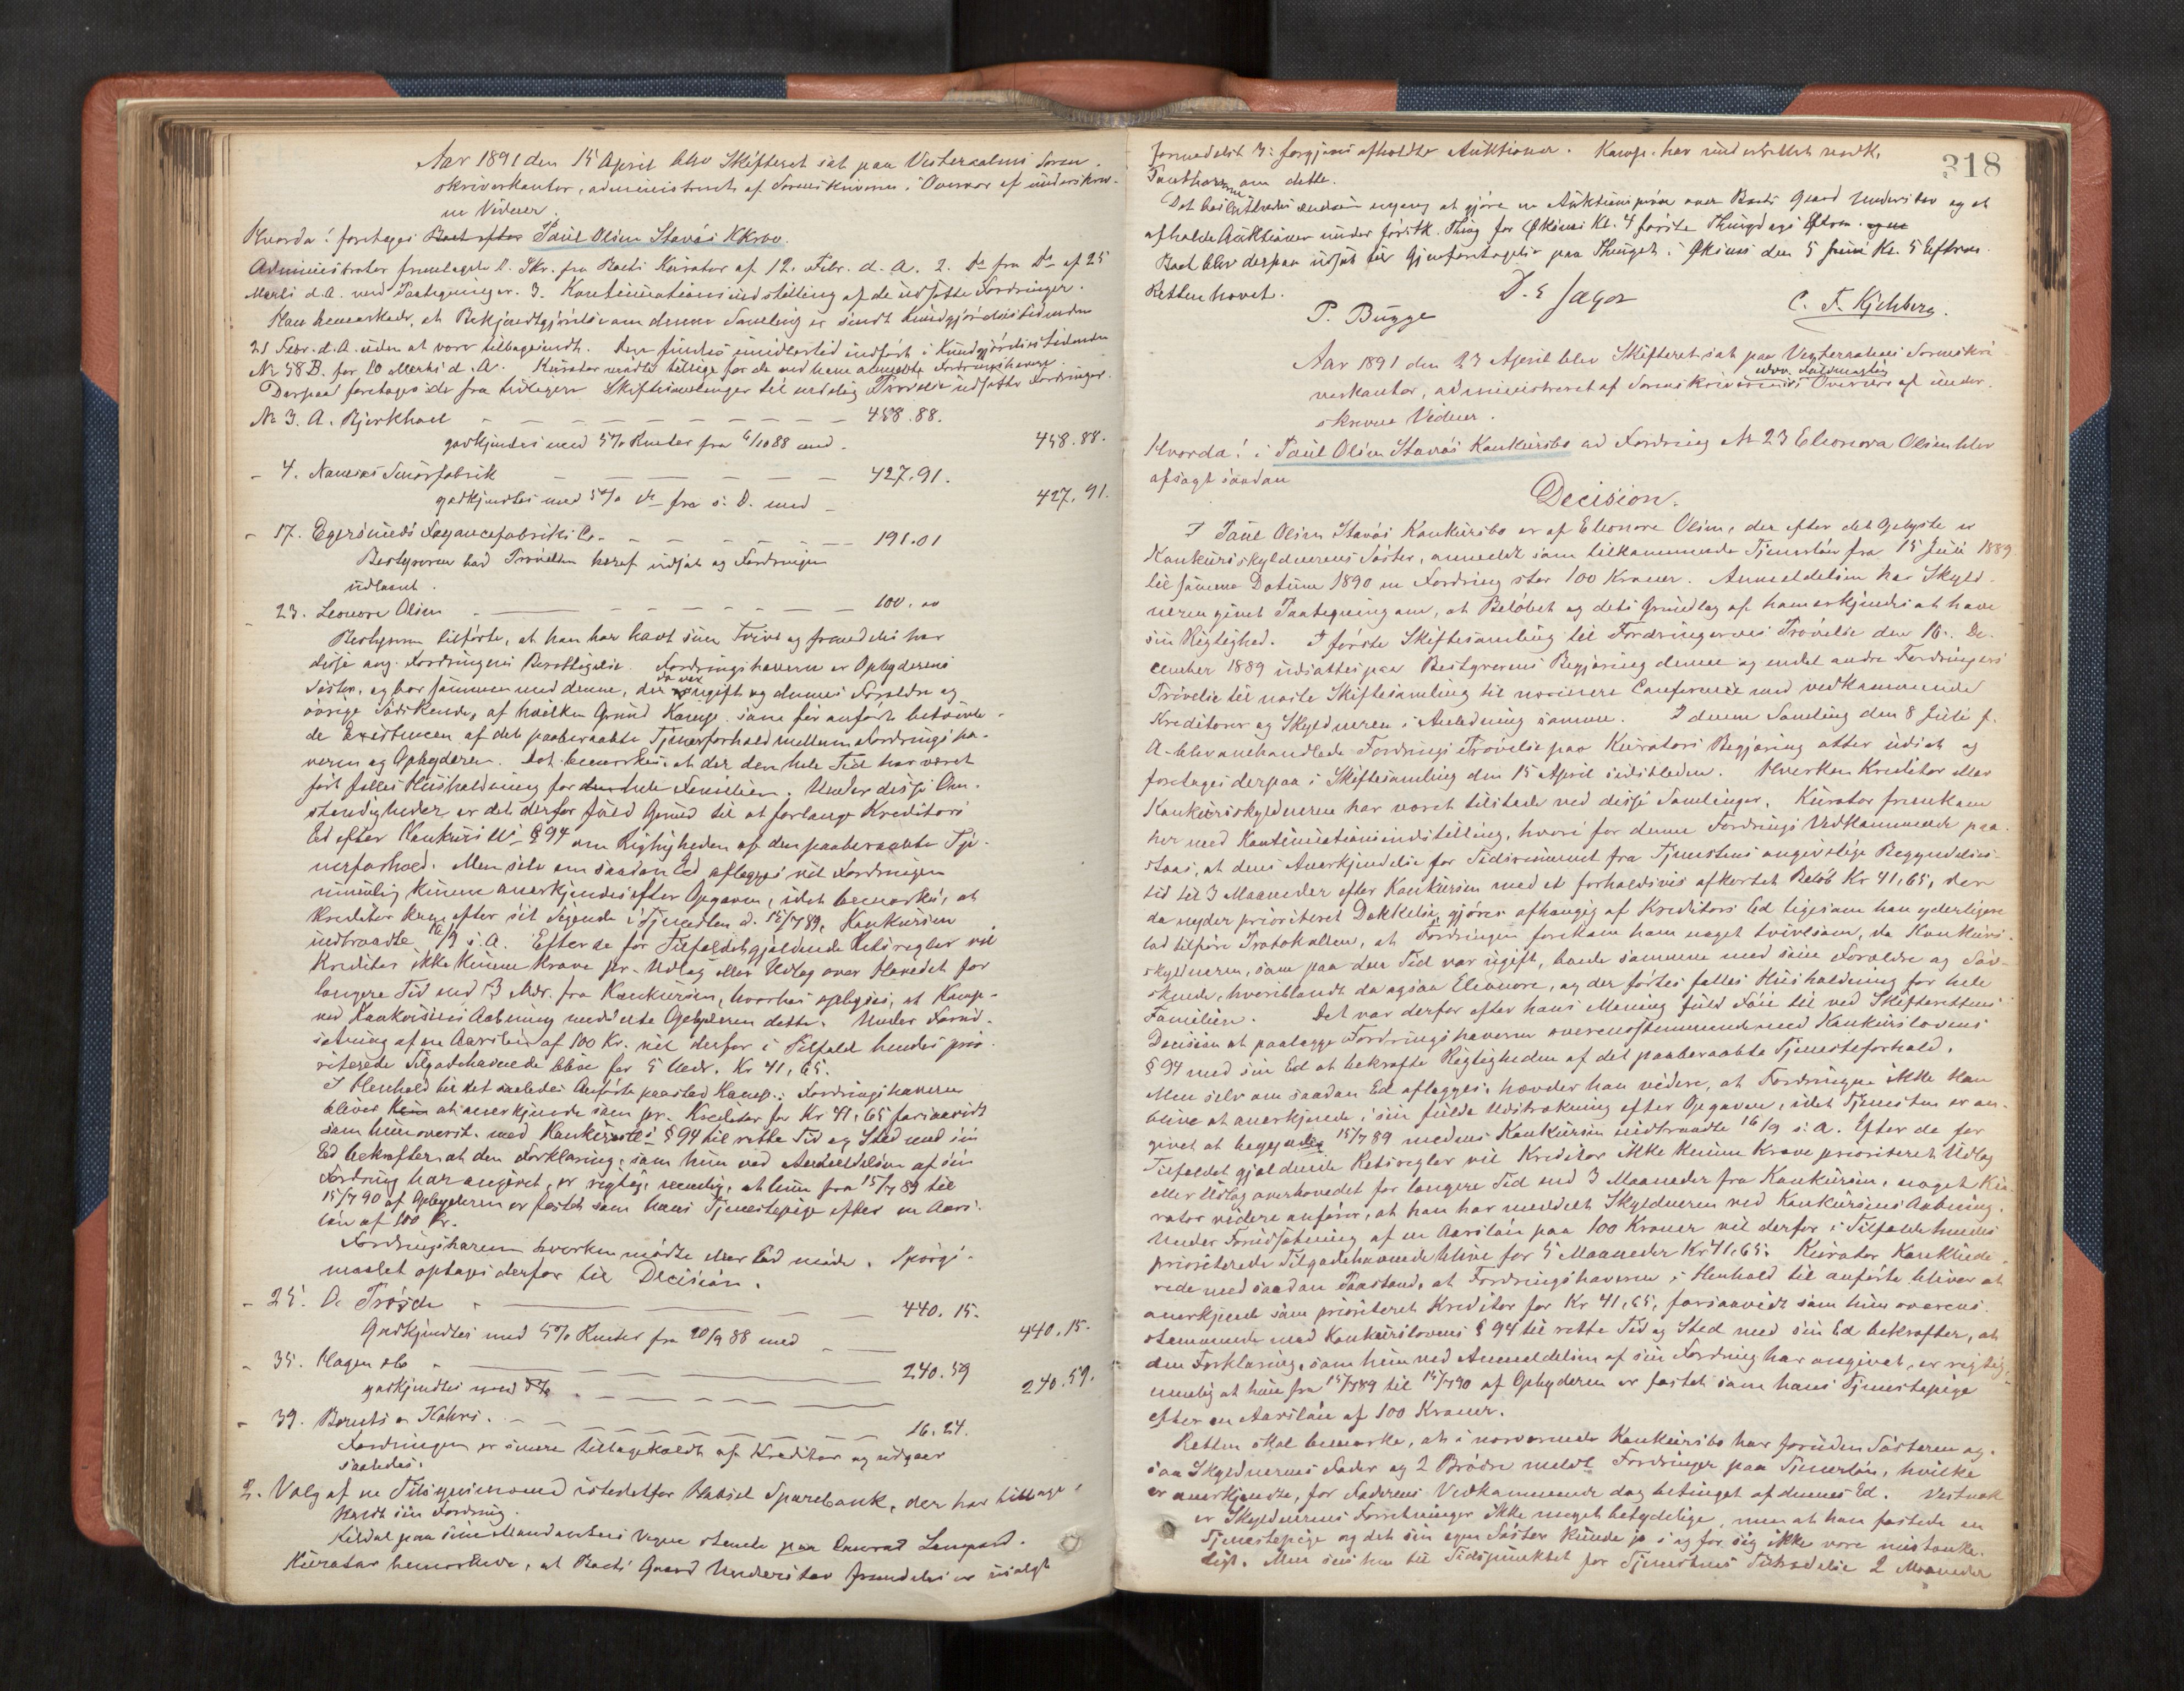 Aar 1891 den 15 April blev Skifteret sat paa Vesteraalens Soren-
skriverkontor, administreret af Sorenskriveren i Overvær af underskrev-
ne Vidner.
Hvorda! foretages Boet efter Paul Olsen Stavås KKrbo.
Administrator fremlagde 1. Skr. fra Boets Kurator af 12. Febr. d. A. 2. Do fra Do af 25
Marts d. A. med Paategninger. 3. Kontinuationsindstilling af de udsatte Fordringer.
Han bemærkede, at Bekjendtgjörelse om denne Samling er sendt Kundgjörelsestidenden
21 Febr. d. A. uden at være tilbagesendt. Den findes imidlertid indført i Kundgjörelses Tidenden
No 58 B. for 10 Marts d. A. Kurator mødte tillige for de ved ham anmeldte Fordringshavere.
Derpaa foretages de fra tidligere Skiftesamlinger til endelig Prøvelse udsatte Fordringer.
No 3. A. Bjerkhoel 458.88.
godkjendtes med 5% Renter fra 6/10 88 med 458.88.
- 4. Smörfabrik 427.91.
godkjendtes med 5% Do fra s. D. med 427.91.
- 17. Egersunds Fayancefabriks Co 191.01
Bestyreren bad Prövelsen heraf udsat og Fordringen
udlaant.
- 23. Leonore Olsen 100.00
Bestyreren tilførte, at han har havt sine Tvivl og fremdeles har
disse ang. Fordringens Berettigelse. Fordringshaveren er Opbyderens
Søster, og bor sammen med denne, der da var ugift og dennes Foraldre og
øvrige Södskende, af hvilken Grund Komp. som før anført betvivle-
de Existencen af det paaberaabte Tjenerforhold mellem Fordringsha-
veren og Opbyderen. Det bemærkes, at der den hele Tid har været
ført fælles Husholdning for den hele Familien. Under disse Om-
stændigheder er det derfor fuld Grund til at forlange Kreditors
Ed efter Konkursl.s § 94 om Rigtigheden af den paaberaabte Tje-
nerforhold. Men selv om saadan Ed aflægges vil Fordringen
umulig kunne anerkjendes efter Opgaven, idet bemærkes, at
Kreditor kom efter sit Sigende i Tjenesten d. 15/7 89, Konkursen
indtraadte 16/9 s. A. Efter de for Tilfældet gjældende Retsregler vil
Kreditor ikke kunne kræve pr. Udlæg eller Udlæg over Hovedet for
længere Tid end 3 Mdr. fra Konkursen, hvorhos oplyses, at Komp.
ved Konkursens Aabning meddelte Opbyderen dette. Under Forud-
sætning af en Aarsløn af 100 Kr. vil derfor i Tilfælde hendes prio-
riterede Tilgodehavende blive for 5 Mdr. Kr 41,65.
I Henhold til det saaledes Anførte paastod Komp.: Fordringshaveren
bliver kun at anerkjende som pr. Kreditor for Kr 41,65 forsaavidt
som hun overst. med Konkursl.s § 94 til rette Tid og Sted med sin
Ed bekræfter, at den Forklaring, som hun ved Anmeldelsen af sin
Fordring har angivet, er rigtig, nemlig, at hun fra 15/7 89 til
15/7 90 af Opbyderen er fæstet som hans Tjenestepige efter en Aars-
løn af 100 Kr.
Fordringshaveren hverken mødte eller lod møde. Spørgs-
maalet optages derfor til Decision.
- 25. O. Trösch 440.15.
Godkjendtes med 5% Renter fra 20/9 88 med 440.15.
- 35. Hagen &Co 240.59
godkjendtes med 5% 240.59.
- 39. Berents en Kohrs. 16.24.
Fordringen er senere tilbagekaldt af Kreditor og udgaar
saaledes.
2. Valg af ne Tilsynsmænd istedetfor Hadsel Sparebank, der har tilbage-
kaldt sin Fordring.
Kildal paa sine Mandanters Vegne stemte paa Conrad
Kurator bemærkede, at Boets Gaard fremdeles er usolgt
318
formedelst 3: forgjæves afholdte Auktioner. Komp. har underrettet
om dette.
Det besluttedes endnu engang at gjøre en Auktionsprøve over Boets Gaard og at
afholde Auktionen under førstk. Thing for Øksnes Kl. 4 første Thingdags Efterm.
Boet blev derpaa udsat til Gjenforetagelse paa Thinget i Øksnes den 5 Juni Kl. 5 Efterm.
Retten hævet.
P. Bugge
D. E Jager
C. F. Kjehberg.
Aar 1891 den 23 April blev Skifteret sat paa Vesteraalens Sorenskri-
verkontor, administreret af Sorenskriverens edsv. Fuldmægtig i Overvær af under-
skrevne Vidner.
Hvorda! i Paul Olsen Stavås Konkursbo ad Fordring No 23 Eleonora Olsen blev
afsagt saadan
Decision.
I Paul Olsen Stavås Konkursbo er af Eleonore Olsen, der efter det Oplyste er
Konkursskyldnerens Söster, anmeldt som tilkommende Tjenerløn fra 15 Juli 1889
til samme Datum 1890 en Fordring stor 100 Kroner. Anmeldelsen har Skyld-
neren givet Paategning om, at Beløbet og dets Grundlag af ham erkjendes at have
sin Rigtighed. I første Skiftesamling til Fordringernes Prøvelse den 16. De-
cember 1889 udsattes paa Bestyrerens Begjæring denne og endel andre Fordringers
Prøvelse til næste Skiftesamling til nærmere Conference med vedkommende
Kreditorer og Skyldneren i Anledning samme. I denne Samling den 8 Juli f.
A. blev omhandlede Fordrings Prøvelse paa Kurators Begjæring atter udsat og
foretages derpaa i Skiftesamling den 15 April sidstleden. Hverken Kreditor eller
Konkursskyldneren har været tilstede ved disse Samlinger. Kurator fremkom
her med Kontinuationsindstilling, hvori for denne Fordrings Vedkommende paa-
staaes, at dens Anerkjendelse for Tidsrummet fra Tjenestens angivelige Begyndelses-
tid til 3 Maaneder efter Konkursen med et forholdsvis afkortet Beløb Kr 41,65, der
da nyder prioriteret Dækkelse, gjøres afhængig af Kreditors Ed ligesom han yderligere
lod tilføre Protokollen, at Fordringen forekom ham noget tvivlsom, da Konkurs-
skyldneren, som paa den Tid var ugift, boede sammen med sine Forældre og Sød-
skende, hvoriblandt da ogsaa Eleonore, og der førtes fælles Husholdning for hele
Familien. Det var derfor efter hans Mening fuld Føie til ved Skifterettens
Decision at paalægge Fordringshaveren overensstemmende med Konkurslovens
§ 94 med sin Ed at bekræfte Rigtigheden af det paaberaabte Tjenesteforhold.
Men selv om saadan Ed aflægges, hævder han videre, at Fordringen ikke kan
blive at anerkjende i sin fulde Udstrækning efter Opgaven, idet Tjenesten er an-
givet at begynde 15/7 89 medens Konkursen indtraadte 16/9 s. A. Efter de for
Tilfældet gjældende Retsregler vil Kreditor ikke kunne kræve prioriteret Udlæg
eller Udlæg overhovedet for længere Tid end 3 Maaneder fra Konkursen, noget Ku-
rator videre anfører, at han har meddelt Skyldneren ved Konkursens Aabning.
Under Forudsætning af en Aarsløn paa 100 Kroner vil derfor i Tilfælde hendes
prioriterede Tilgodehavende blive for 5 Maaneder Kr 41,65. Kurator konklude-
rede med saadan Paastand, at Fordringshaveren i Henhold til anførte bliver at
anerkjende som prioriteret Kreditor for Kr 41,65, forsaavidt som hun overens-
stemmende med Konkurslovens § 94 til rette Tid og Sted med sin Ed bekræfter, at
den Forklaring, som hun ved Anmeldelsen af sin Fordring har angivet, er rigtig,
nemlig at hun fra 15/7 89 til 15/7 90 af Opbyderen er fæstet som hans Tjenestepige
efter en Aarsløn af 100 Kroner.
Retten skal bemærke, at i nærværende Konkursbo har foruden Søsteren og-
saa Skyldnerens Fader og 2 Brødre meldt Fordringer paa Tjenerløn, hvilke
er anerkjendte, for Faderens Vedkommende dog betinget af dennes Ed. Vistnok
er Skyldnerens Forretninger ikke meget betydelige, men at han fæstede en
Tjenestepige og det sin egen Søster kunde jo i og for sig ikke være mistænke-
ligt. Men sees hen til Tidspunktet for Tjenestens Tiltrædelse 2 Maaneder